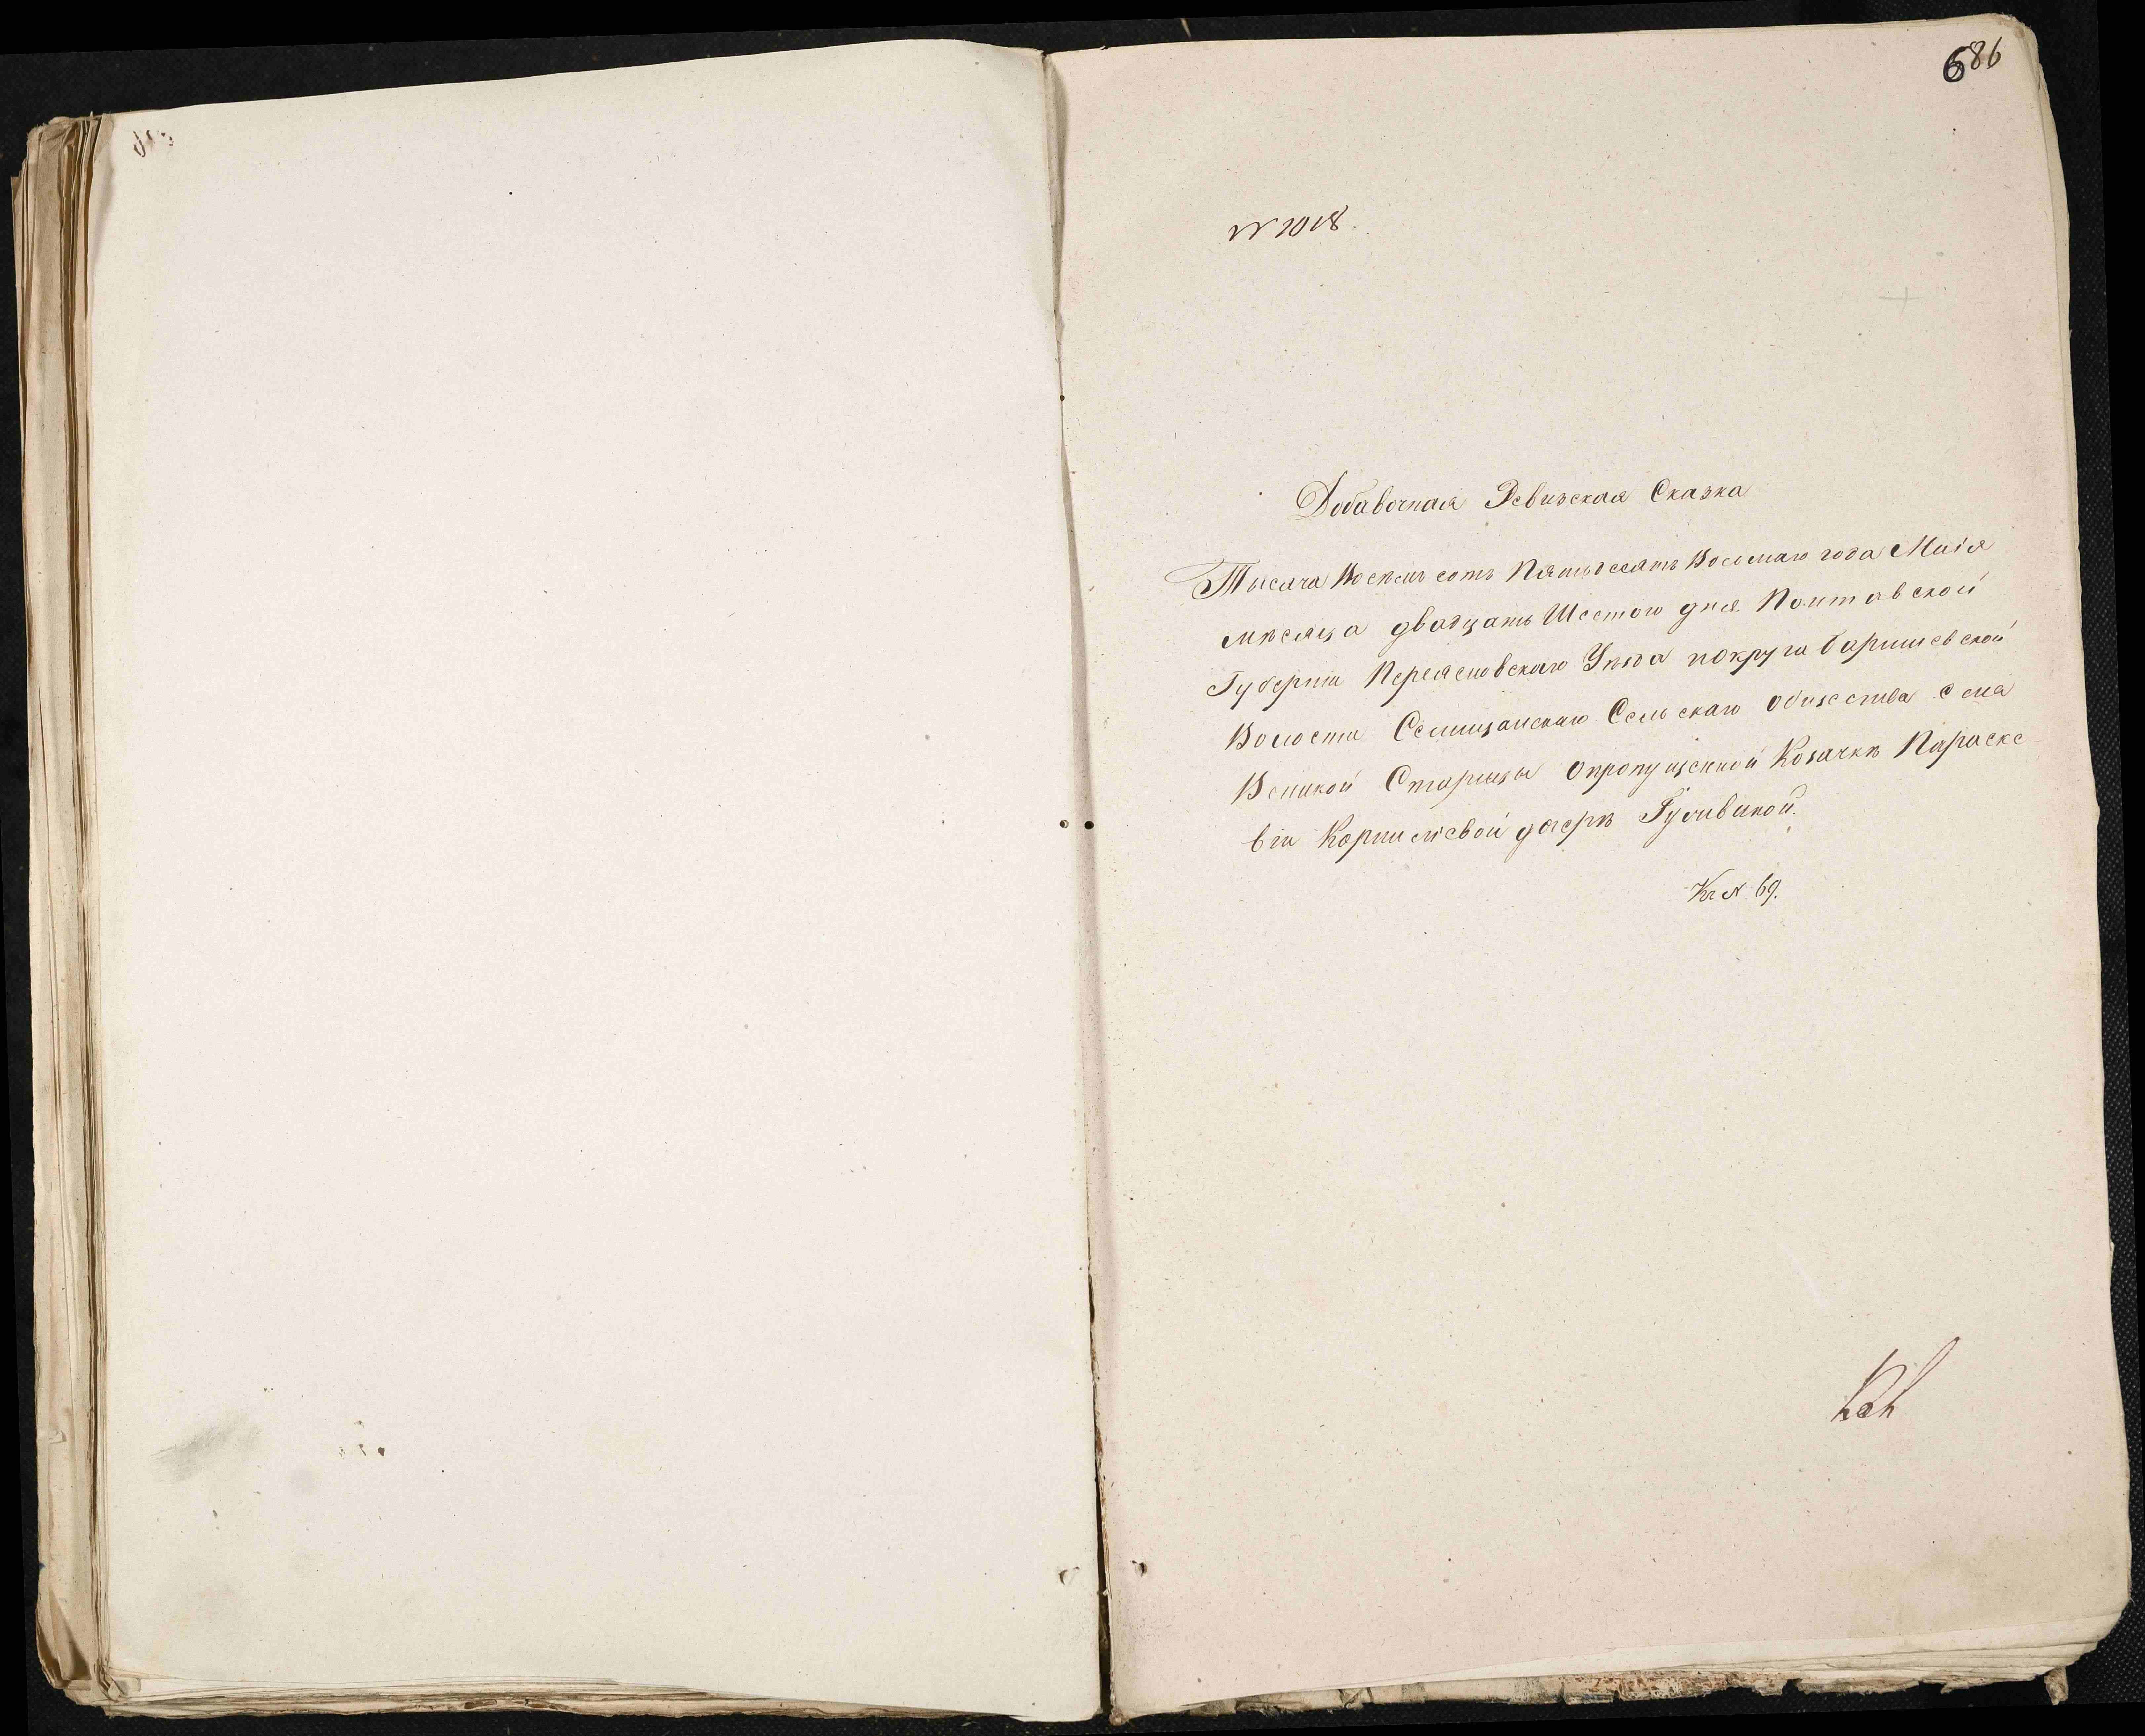 686
№ 1018.
Добавочная Ревизская Сказка
Тысяча Восемь сотъ Пятьдесятъ Восьмаго года Маія
мѣсяца двадцать Шестого дня Полтавской
Губерніи Переяславскаго Уѣзда покруга Баришевской
Волости Селищанскаго Сельскаго Общества села
Великой Старицы опропущенной Козачкѣ Параске
віи Корнилієвой дочерѣ Гуливиной.
Къ № 69.